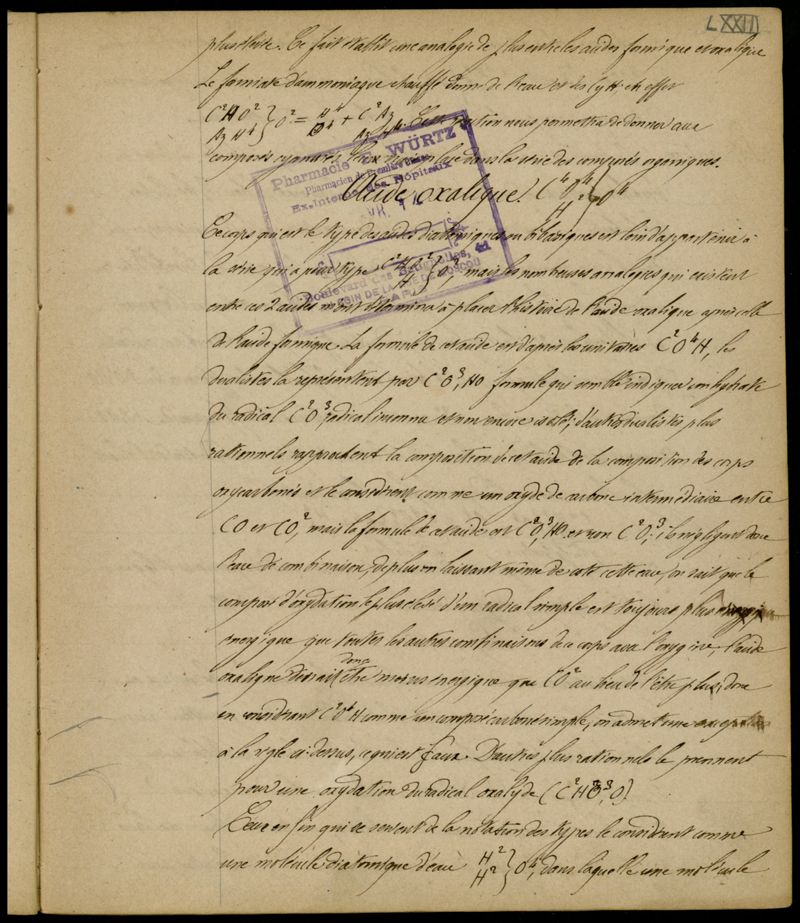 LXXIII
plus élevée. Ce fait établit une analogie de plus entre les acides formique et oxalique
Le formiate d'ammoniaque chauffé donne de l'eau et de l'CyH en effet
C²HO² } O² = H⁴ + C² Az
Az H⁴ O⁴ Az H⁴. Cette réaction nous permettra de donner aux
composés cyanurés leur place dans la série des composés organiques.
Pharmacie WÜRTZ
Pharmacien de Première Classe
Ex-Interne des Hôpitaux
Boulevard des Batignolles, 41
DE MOSCOU
Acide oxalique. C⁴O⁴ } O⁴
H²
Ce corps qui est le type des acides diatomiques ou bibasiques est loin d'appartenir à
la série qui a pour type C²HO² } O², mais les nombreuses analogies qui existent
H
entre ces 2 acides m'ont déterminé à placer l'histoire de l'acide oxalique après celle
de l'acide formique. La formule de cet acide est d'après les unitaires C²O⁴H, les
dualistes la représentent par C²O³, HO formule qui semble indiquer un hydrate
du radical C²O³, radical inconnu et non encore isolé; d'autres dualistes plus
rationnels rapportent la composition de cet acide de la composition des corps
oxycarbonés et le considèrent comme un oxyde de carbone intermédiaire entre
CO et CO², mais la formule de cet acide est C²O³, HO et non C²O³: ils négligent donc
l'eau de combinaison, de plus en laissant même de côté cette eau, on sait que le
composé d'oxydation le plus élevé d'un radical simple est toujours plus
énergique que toutes les autres combinaisons de ce corps avec l'oxygène, l'acide
oxalique devrait donc être moins énergique que CO² au lieu de l'être plus, donc
en considérant C²O⁴H comme un composé carboné simple, on admet une
à la règle ci-dessus, ce qui est faux. D'autres plus rationnels le prennent
pour une oxydation du radical oxalyde (C²HO³, O)
Ceux enfin qui se servent de la notation des types le considèrent comme
une molécule diatomique d'eau H² } O⁴, dans laquelle une molécule
H²